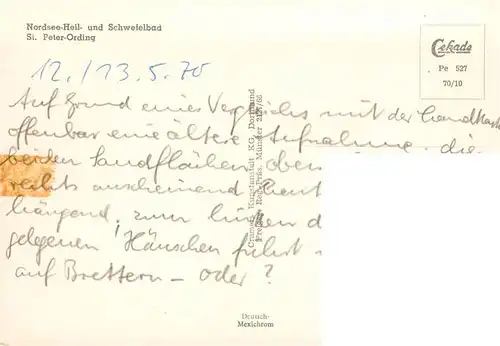 Nordsee-Heil- und Schwefelbad
St. Peter-Ording
Cekade
Pe 527
70/10
12./13.5.70
Auf Grund eines Vergleichs mit der Landkart
offenbar eine ältere Aufnahme. die
beiden Sandflächen oben
rechts anscheinend heut
hängend, zum linken d
gelegenen Häuschen führt
auf Brettern – oder?
Cramers Kunstanstalt KG, Dortmund
Freig. Reg.-Präs. Münster
Deutsch-
Mexichrom